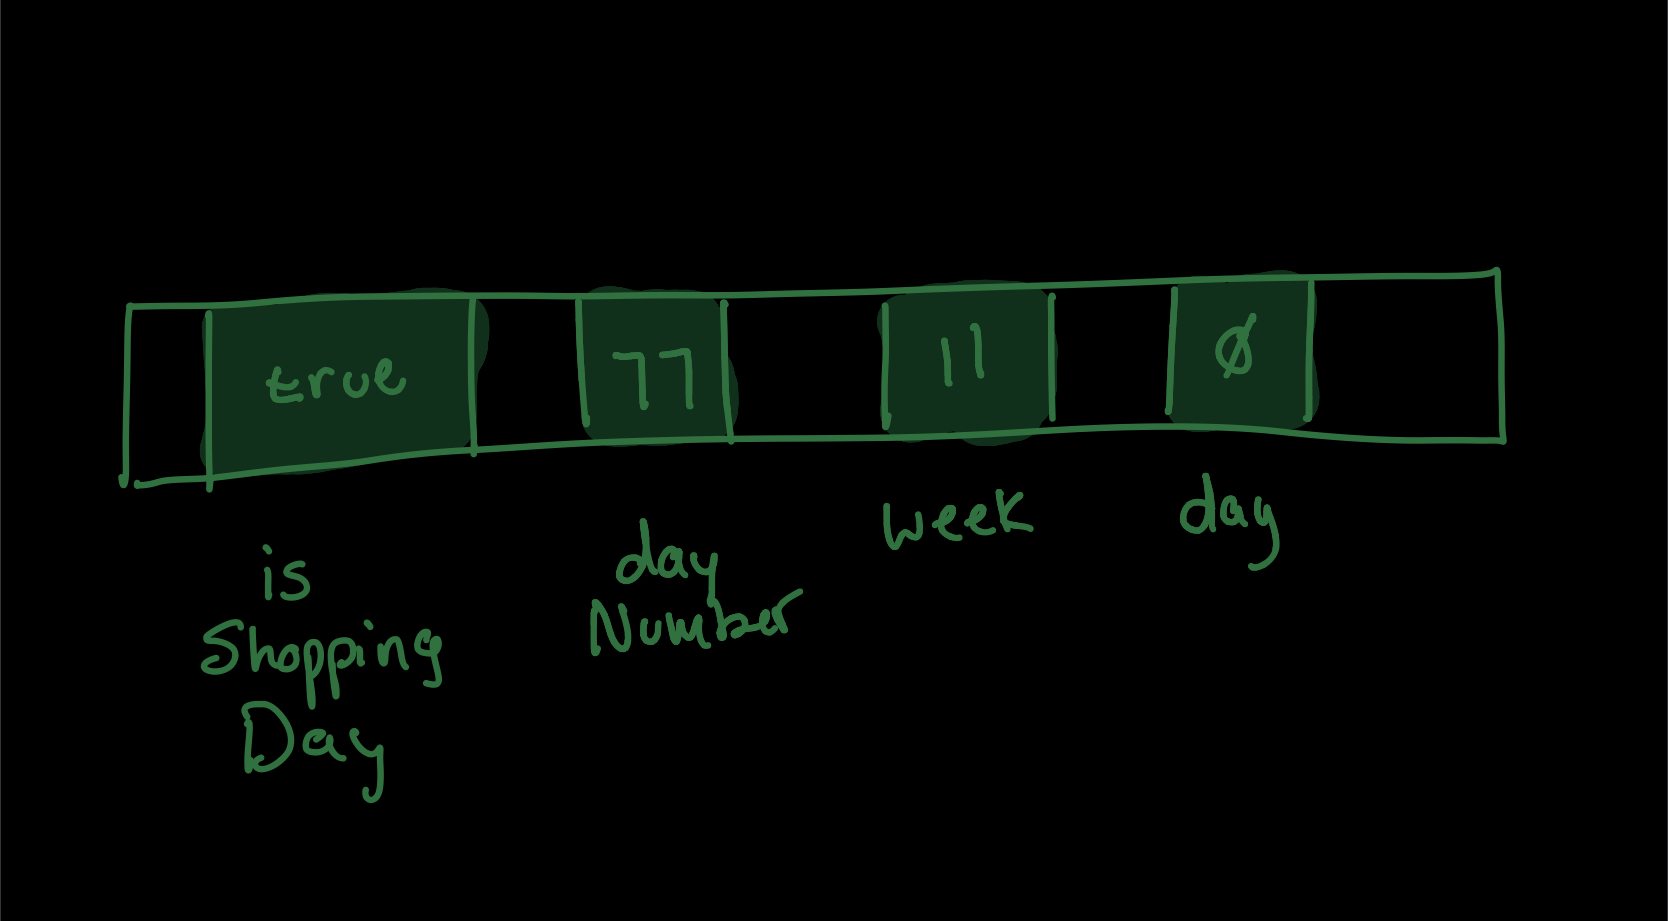 true 77 11 Ø
is
Shopping
Day
day
Number
week
day